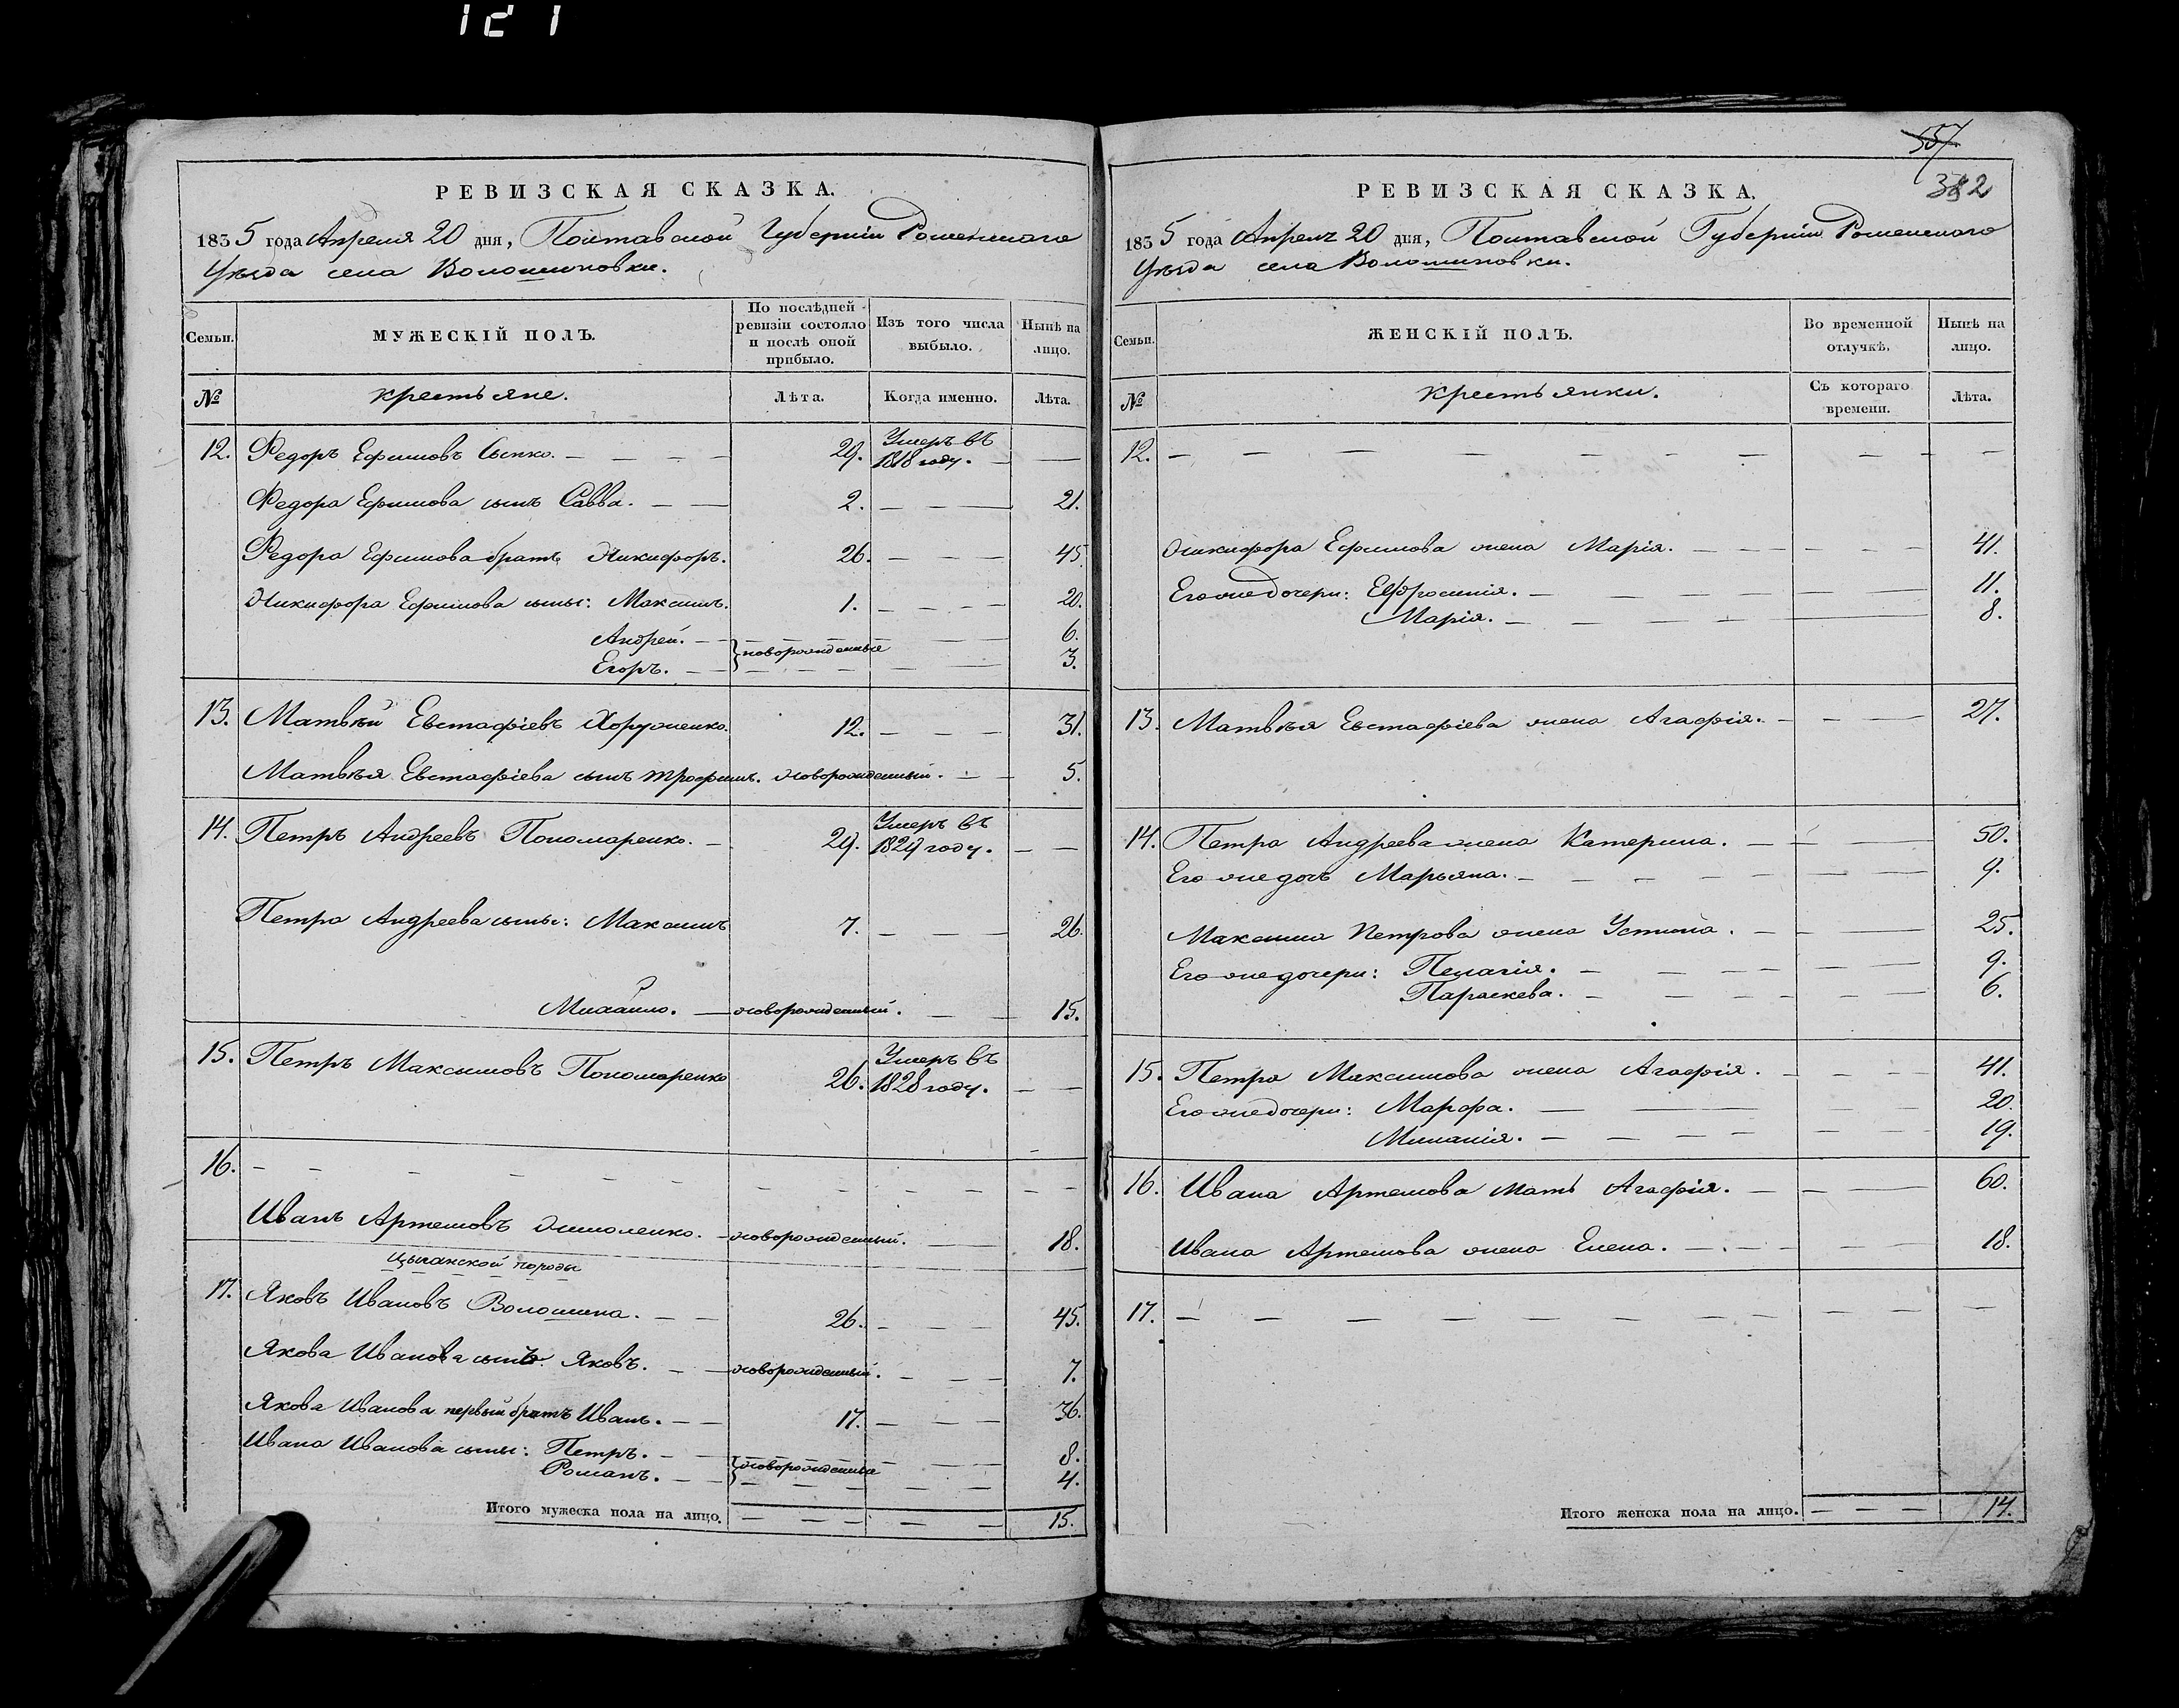 121
РЕВИЗСКАЯ СКАЗКА.
1835 года Апреля 20 дня, Полтавской Губернiи Роменскаго
Уѣзда села Волошиновки.
Семьи.
МУЖЕСКIЙ ПОЛЪ.
По послѣдней ревизiи состояло и послѣ оной прибыло.
Изъ того числа выбыло.
Нынѣ на лицо.
№
крестьяне.
Лѣта.
Когда именно.
Лѣта.
12. Федоръ Ефимовъ 29. Умеръ въ 1818 году.
Федора Ефимова сынъ Савва. 2. 21.
Федора Ефимова братъ Никифоръ. 26. 45.
Никифора Ефимова сыны: Максимъ. 1. 20.
Андрей. 6.
новорожденные
Егоръ. 3.
13. Матвѣй Евстафiевъ Хоруженко. 12. 31.
Матвѣя Евстафiева сынъ Трофимъ. новорожденный. 5.
14. Петръ Андреевъ Пономаренко. 29. Умеръ въ 1829 году.
Петра Андреева сыны: Максимъ 7. 26.
Михайло. новорожденный. 15.
15. Петръ Максимовъ Пономаренко 26. Умеръ въ 1828 году.
16.
Иванъ Артемовъ новорожденный. 18.
Цыганской породы
17. Яковъ Ивановъ Волошина. 26. 45.
Якова Иванова сынъ Яковъ. новорожденный. 7.
Якова Иванова первый братъ Иванъ. 17. 36.
Ивана Иванова сыны: Петръ. 8.
новорожденные
Романъ. 4.
Итого мужеска пола на лицо. 15.
557
382
РЕВИЗСКАЯ СКАЗКА.
1835 года Апреля 20 дня, Полтавской Губернiи Роменскаго
Уѣзда села Волошиновки.
Семьи.
ЖЕНСКIЙ ПОЛЪ.
Во временной отлучкѣ.
Нынѣ на лицо.
№
крестьянки.
Съ котораго времени.
Лѣта.
12.
Никифора Ефимова жена Марiя. 41.
Его же дочери: Ефросинiя. 11.
Марiя. 8.
13. Матвѣя Евстафiева жена Агафiя. 27.
14. Петра Андреева жена Катерина. 50.
Его же дочь Марьяна. 9.
Максима Петрова жена Устина. 25.
Его же дочери: Пелагiя. 9.
Параскева. 6.
15. Петра Максимова жена Агафiя. 41.
Его же дочери: Марфа. 20.
Миланiя. 19.
16. Ивана Артемова мать Агафiя. 60.
Ивана Артемова жена Елена. 18.
17.
Итого женска пола на лицо. 14.